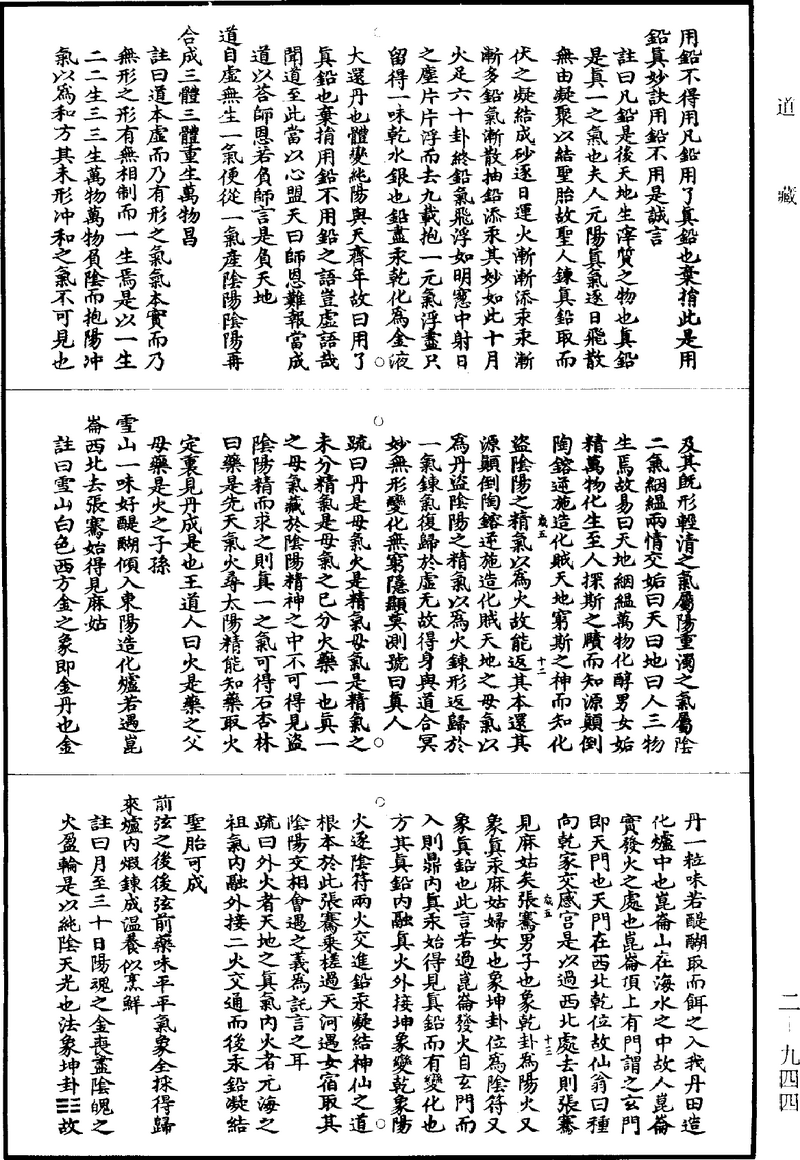 道藏
二—九四四
用鉛不得用凡鉛用了真鉛也棄捐此是用
鉛真妙訣用鉛不用是誠言
註曰凡鉛是後天地生滓質之物也真鉛
是真一之氣也夫人元陽真氣逐日飛散
無由凝聚以結聖胎故聖人鍊真鉛取而
伏之凝結成砂逐日運火漸漸添汞汞漸
漸多鉛氣漸散抽鉛添汞其妙如此十月
火足六十卦終鉛氣飛浮如明窻中射日
之塵片片浮而去九載抱一元氣浮盡只
留得一味乾水銀也鉛盡汞乾化為金液
大還丹也體變純陽與天齊年故曰用了
真鉛也棄捐用鉛不用鉛之語豈虛語哉
聞道至此當以心盟天曰師恩難報當成
道以荅師恩若負師言是負天地
道自虛無生一氣便從一氣產陰陽陰陽再
合成三體三體重生萬物昌
註曰道本虛而乃有形之氣氣本實而乃
無形之形有無相制而一生焉是以一生
二二生三三生萬物萬物負陰而抱陽冲
氣以為和方其未形冲和之氣不可見也
及其既形輕清之氣屬陽重濁之氣屬陰
二氣絪縕兩情交姤曰天曰地曰人三物
生焉故易曰天地絪縕萬物化醇男女姤
精萬物化生至人探斯之賾而知源顛倒
陶鎔逆施造化賊天地窮斯之神而知化
盜陰陽之精氣以為火故能返其本還其
源顛倒陶鎔逆施造化賊天地之母氣以
為丹盜陰陽之精氣以為火鍊形返歸於
一氣鍊氣復歸於虛无故得身與道合冥
妙無形變化無窮隱顯莫測號曰真人
疏曰丹是母氣火是精氣母氣是精氣之
未分精氣是母氣之已分火藥一也真一
之母氣藏於陰陽精神之中不可得見盜
陰陽精而求之則真一之氣可得石杏林
曰藥是先天氣火尋太陽精能知藥取火
定裏見丹成是也王道人曰火是藥之父
母藥是火之子孫
雪山一味好醍醐傾入東陽造化爐若遇崑
崙西北去張騫始得見麻姑
註曰雪山白色西方金之象即金丹也金
丹一粒味若醍醐取而餌之入我丹田造
化爐中也崑崙山在海水之中故人崑崙
實發火之處也崑崙頂上有門謂之玄門
即天門也天門在西北乾位故仙翁曰種
向乾家交感宮是以過西北處去則張騫
見麻姑矣張騫男子也象乾卦為陽火又
象真汞麻姑婦女也象坤卦位為陰符又
象真鉛也此言若過崑崙發火自玄門而
入則鼎內真汞始得見真鉛而有變化也
方其真鉛內融真火外接坤象變乾象陽
火逐陰符兩火交進鉛汞凝結神仙之道
根本於此張騫乘槎過天河遇女宿取其
陰陽交相會遇之義為託言之耳
疏曰外火者天地之真氣內火者元海之
祖氣內融外接二火交通而後汞鉛凝結
聖胎可成
前弦之後後弦前藥味平平氣象全採得歸
來爐內煅鍊成溫養似烹鮮
註曰月至三十日陽魂之金喪盡陰魄之
火盈輪是以純陰天光也法象坤卦☷故